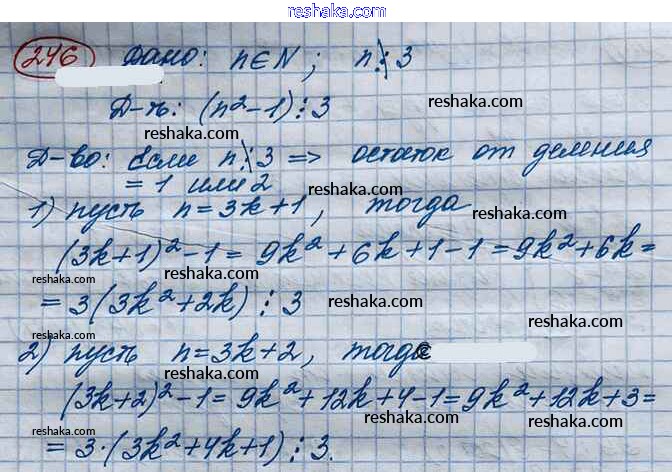 www.reshaka.com
246 Дано: n∈N; n⋮̸3
Д-ть: (n²-1)⋮3
reshaka.com
reshaka.com
Д-во: Если n⋮̸3 => остаток от деления
= 1 или 2
reshaka.com
1) пусть n=3k+1, тогда
reshaka.com
(3k+1)²-1=9k²+6k+1-1=9k²+6k=
reshaka.com
reshaka.com
=3(3k²+2k)⋮3 reshaka.com
reshaka.com
2) пусть n=3k+2, тогда
reshaka.com
reshaka.com
(3k+2)²-1=9k²+12k+4-1=9k²+12k+3=
reshaka.com
reshaka.com
=3·(3k²+4k+1)⋮3.
reshaka.com